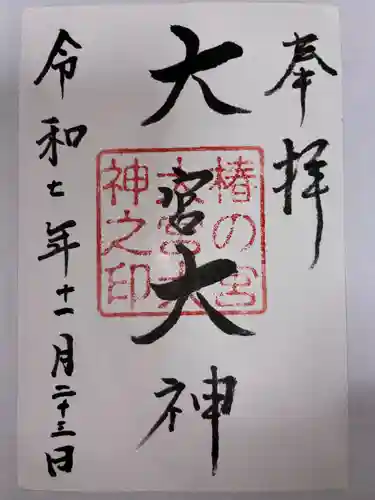 奉拝
大宮大神
椿の宮
大宮大
神之印
令和七年十一月二十三日